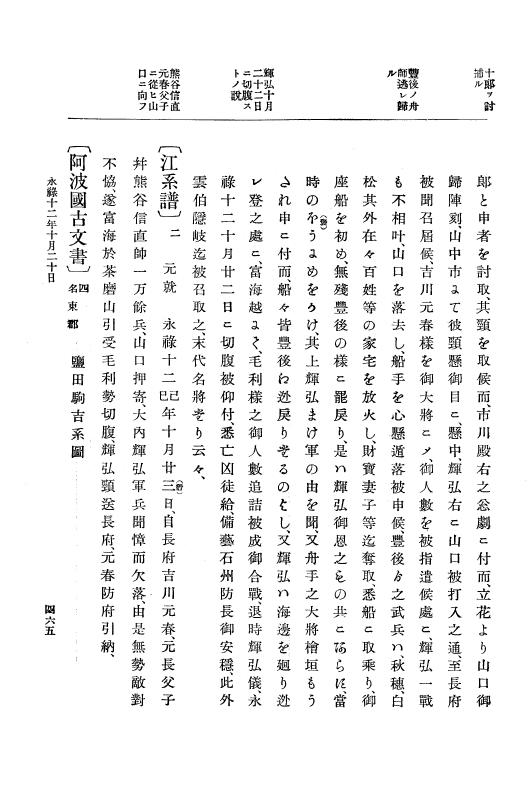 十郎ヲ討
捕ル
豐後ノ舟
師逃レ歸
ル
輝弘十月
二十二日
ニ切腹ス
トノ說
熊谷信直
元春父子
ニ從ヒ山
口ニ向フ
郎と申者を討取、其頸を取候而、市川殿右之忩劇ニ付而、立花より山口御
歸陣刻、山中市まて彼頸懸御目ニ懸中、輝弘右ニ山口被打入之通、至長府
被聞召屆候、吉川元春樣を御大將ニメ、御人數を被指遣候處ニ、輝弘一戰
も不相叶、山口を落去し、船手を心懸遁落被申候、豐後ゟ之武兵ハ、秋穗、白
松其外在々百姓等の家宅を放火し、財寶妻子等迄奪取、悉船ニ取乘り、御
座船を初め、無殘豐後の樣ニ罷戾り、是ハ輝弘御恩之ものの共ニあらに、當
時のをうよめをうけ、其上輝弘まけ軍の由を聞、又舟手之大將檜垣もう
され申ニ付而、船々皆豐後ニ迯戾りそるのとし、又輝弘ハ海邊を廻り迯
レ登之處ニ、富海越よて、毛利樣之御人數追詰被成御合戰、退時輝弘儀、永
祿十二十月廿二日ニ切腹被仰付、悉亡凶徒給、備藝石州防長御安穩、此外
雲伯隱岐迄被召取之、末代名將そり云々、
〔江系譜〕二　元就　永祿十二己巳年十月廿三日、自長府吉川元春、元長父子
幷熊谷信直帥一万餘兵、山口押寄、大內輝弘軍兵聞憚而欠落、由是無勢敵對
不恊、遂富海於茶磨山引受毛利勢切腹、輝弘頸送長府、元春防府引納、
〔阿波國古文書〕四 名東郡　鹽田駒吉系圖
永祿十二年十月二十日
四六五